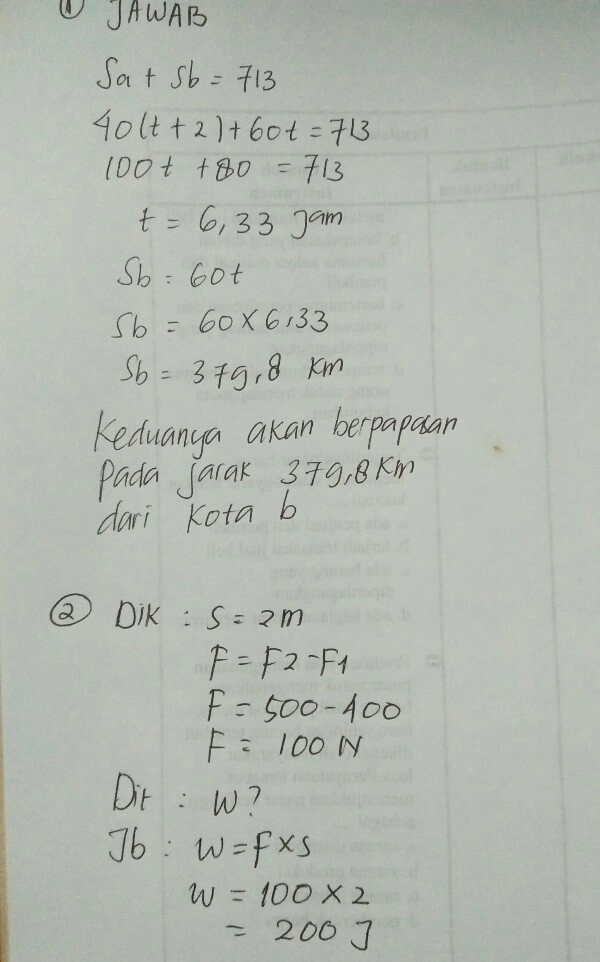 ① JAWAB
Sa + Sb = 713
40(t + 2) + 60t = 713
100t + 80 = 713
t = 6,33 Jam
Sb = 60t
Sb = 60 x 6,33
Sb = 379,8 Km
Keduanya akan berpapasan
Pada jarak 379,8 Km
dari Kota b
② Dik : S = 2m
F = F2 - F1
F = 500 - 400
F = 100 N
Dit : W?
Jb : W = F x S
W = 100 x 2
= 200 J